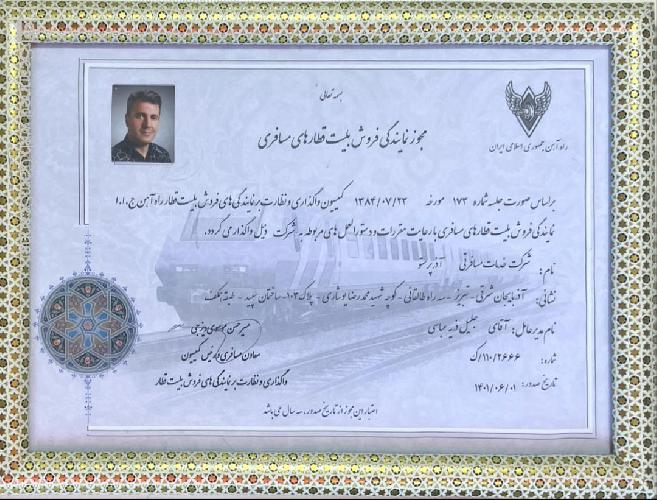 بسمه تعالی
راه آهن جمهوری اسلامی ایران
مجوز نمایندگی فروش بلیت قطارهای مسافری
براساس صورت جلسه شماره ۱۷۳ مورخه ۱۳۸۴/۰۷/۲۳ کمیسیون واگذاری و نظارت بر نمایندگی های فروش بلیت قطار راه آهن ج.ا.ا
نمایندگی فروش بلیت قطارهای مسافری با رعایت مقررات و دستورالعمل های مربوطه به شرکت ذیل واگذاری گردد.
نام: شرکت خدمات مسافرتی آذر پرستو
نشانی: آذربایجان شرقی - تبریز - سه راه طالقانی - کوچه شهید محمدرضا یوشاری - پلاک ۱۰۳ - ساختمان سپید - طبقه همکف
نام مدیرعامل: آقای جلیل عباسی
شماره: ۱۱۰/۲۶۶۶/ک
تاریخ صدور: ۱۴۰۱/۰۶/۰۱
میرحسن موسوی
معاون مسافری و رئیس کمیسیون
واگذاری و نظارت بر نمایندگی های فروش بلیت قطار
اعتبار این مجوز از تاریخ صدور، سه سال می باشد